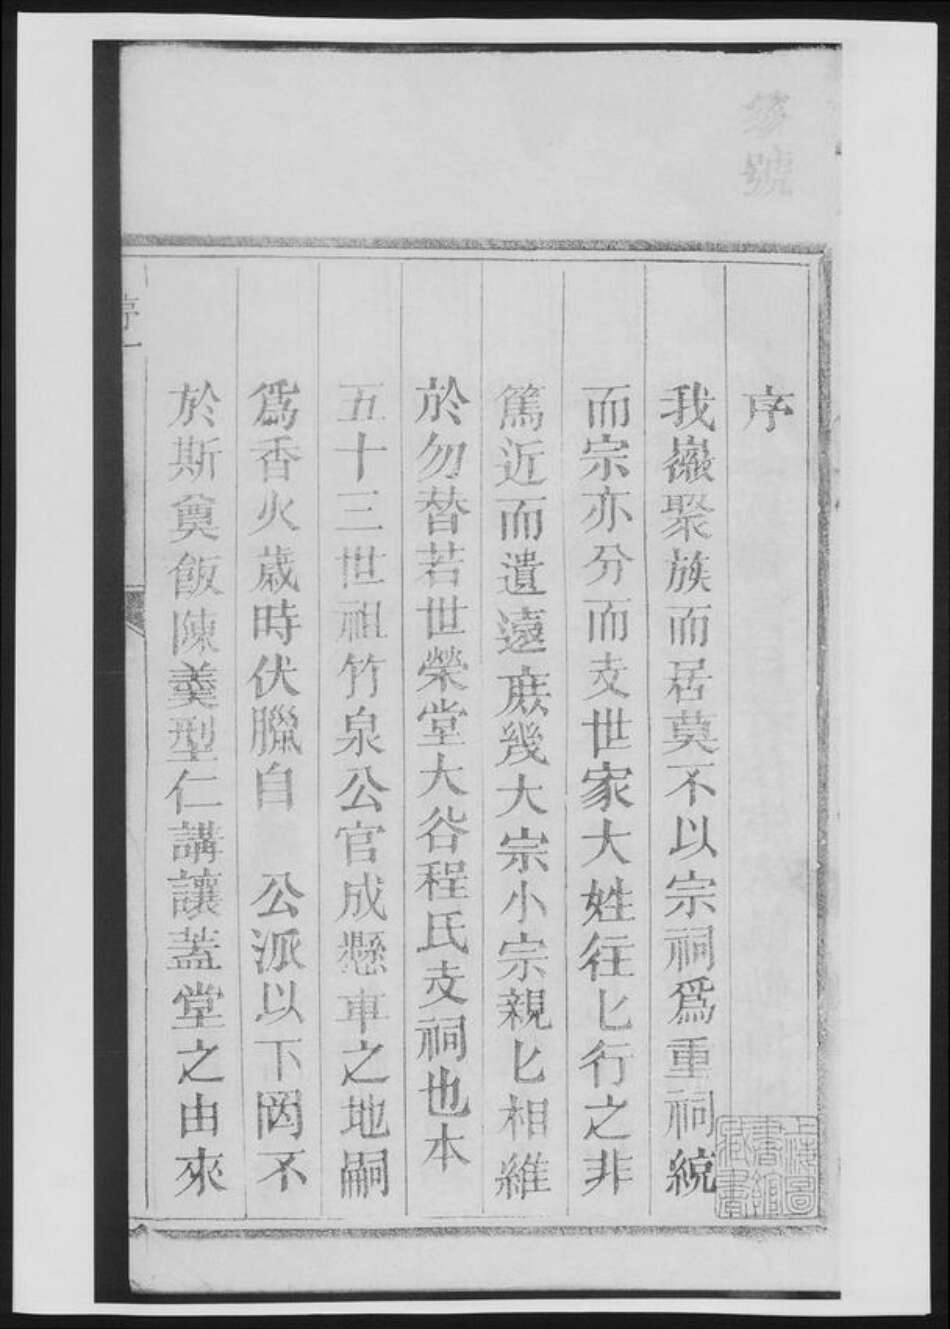 序
我嶶聚族而居莫不以宗祠爲重祠統
而宗亦分而支世家大姓往匕行之非
篤近而遺遠庶幾大宗小宗親匕相維
於勿替若世榮堂大谷程氏支祠也本
五十三世祖竹泉公官成懸車之地嗣
爲香火歲時伏臘自 公派以下罔不
於斯奠飯陳羹型仁講讓蓋堂之由來
號
序一